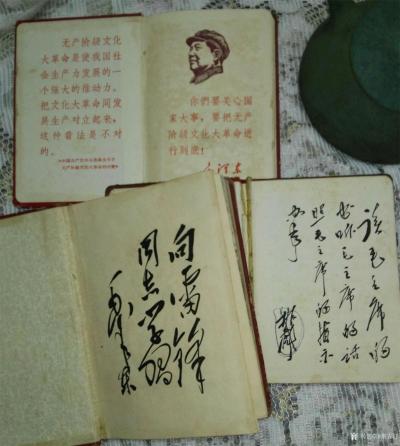 无产阶级文化
大革命是使我国社
会生产力发展的一
个强大的推动力。
把文化大革命同发
展生产对立起来，
这种看法是不对
的。
你們要关心国
家大事，要把无产
阶级文化大革命进
行到底！
毛泽东
向雷锋
同志学习
毛泽东
读毛主席的
书听毛主席的话
照毛主席的指示
办事
林彪